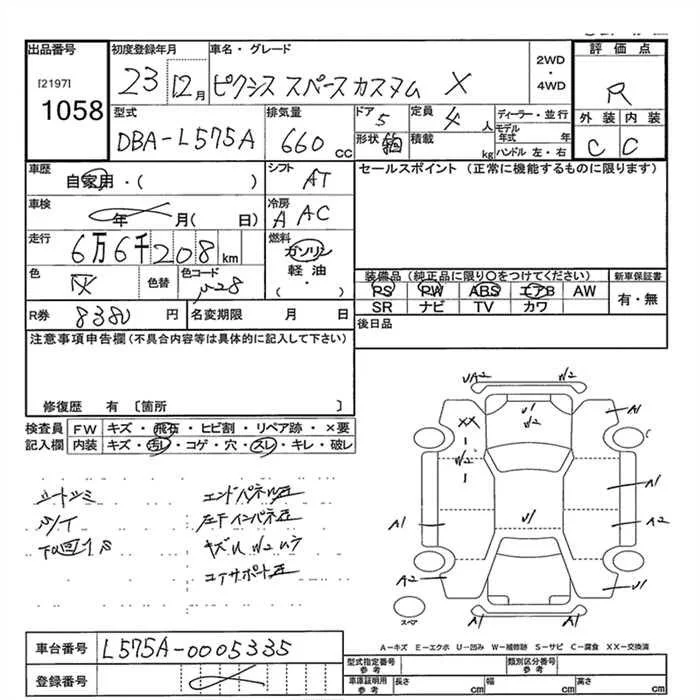 出品番号
[2197]
1058
初度登録年月
23 12月
車名・グレード
ピクシス スペースカスタム X
2WD
・
4WD
評価点
R
外装 内装
C C
型式
DBA-L575A
排気量
660 cc
ドア 5
形状 箱
定員 4人
積載 kg
ディーラー・並行
モデル年式 年
ハンドル 左・右
車歴
自家用・( )
シフト AT
セールスポイント (正常に機能するものに限ります)
車検
年 月( 日)
冷房
A AC
走行
6万6千208km
燃料
ガソリン
軽油
・
( )
色
色替
色コード
装備品 (純正品に限り○をつけてください)
PS PW ABS エアB AW
SR ナビ TV カワ
新車保証書
有・無
R券 8380円
名変期限 月 日
後日品
注意事項申告欄 (不具合内容等は具体的に記入して下さい)
修復歴 有 〔箇所 〕
検査員 FW キズ・飛石・ヒビ割・リペア跡・×要
記入欄 内装 キズ・汚レ・コゲ・穴・スレ・キレ・破レ
UA2 W2
U1
W2
XX
W2
A1
A1
A2
A1
U1
A2
U1
A1 A1
スペア
A-キズ E-エクボ U-凹み W-補修跡 S-サビ C-腐食 XX-交換済
車台番号 L575A-0005335
登録番号
型式指定番号
参考
類別区分番号
参考
車庫証明用
参考
長さ cm
幅 cm
高さ cm